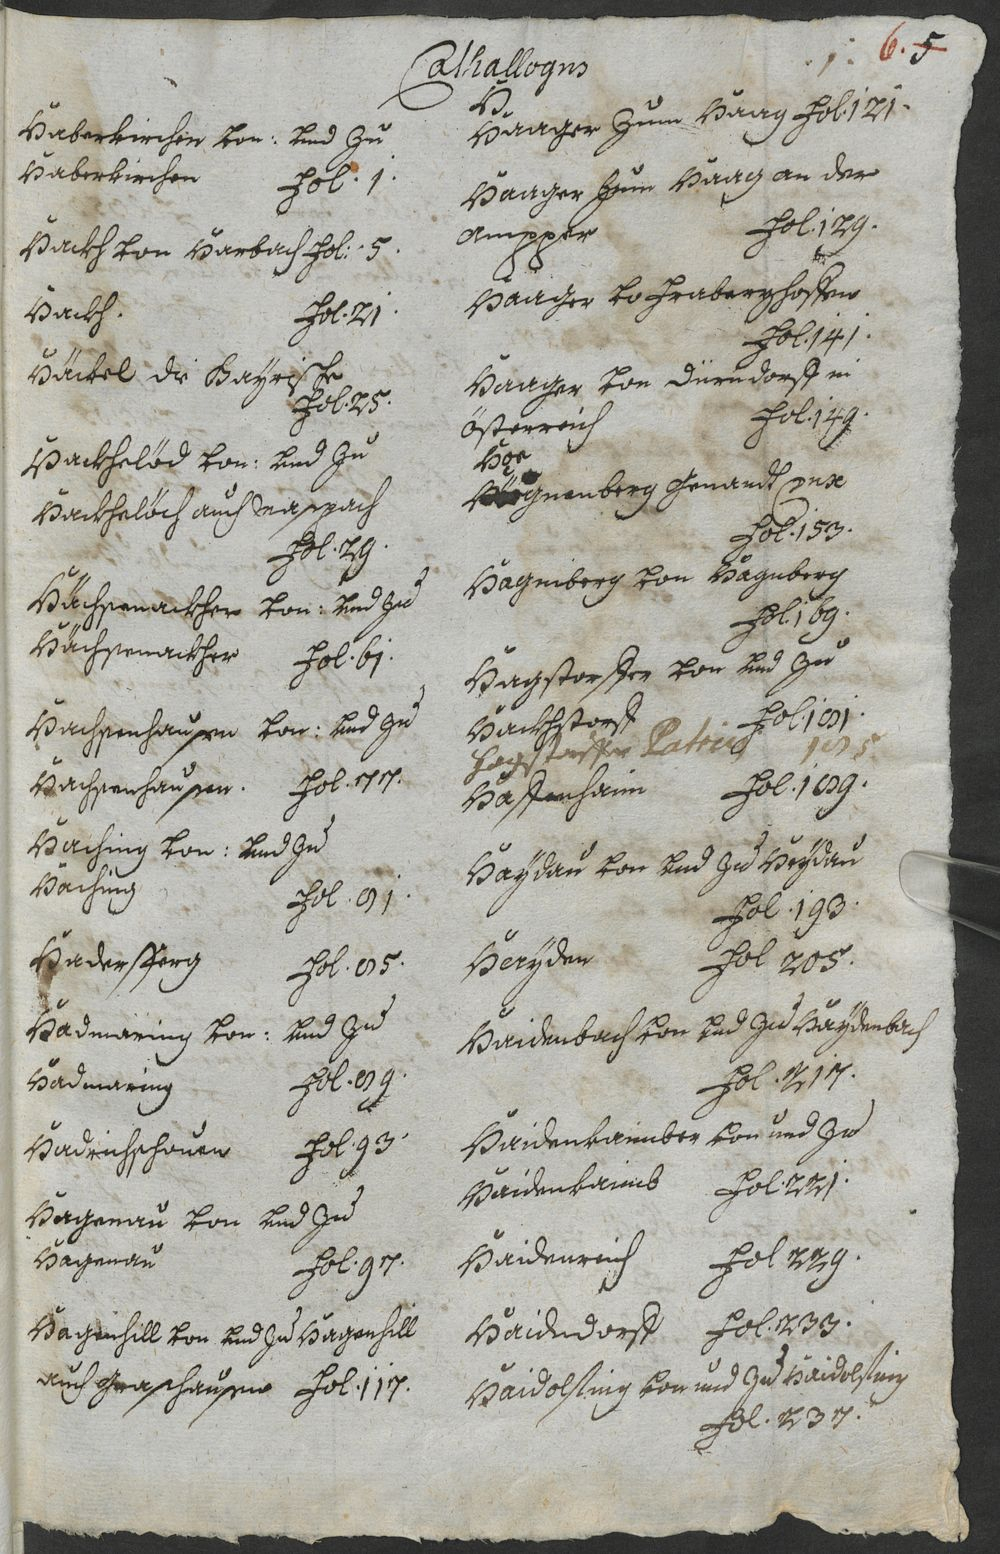 Cathallogus
6. 5
Haberkirchen von: und zu
Haberkirchen fol. 1.
Hackh von Harbach fol: 5.
Hackh. fol. 21.
Häckel die Bayrische
fol. 25.
Hackhelöd von: und zu
Hackhelöch auch Raspach
fol. 29.
Hächsenackher von: und zu
Hächsenackher fol. 61.
Hachsenhausen von: und zu
Hachsenhausen. fol. 77.
Haching von: und zu
Haching fol. 81.
Hadersperg fol. 85.
Hadmaring von: und zu
Hadmaring fol. 89.
Hadrichshouen fol 93.
Hagenau von und zu
Hagenau fol. 97.
Hagenhill von und zu Hagenhill
auch Grashausen fol. 117.
H
Haager zum Haag fol. 121.
Haager zum Haag an der
Ampper fol. 129.
Haager vo
fol. 141.
Haager von Dürndorff in
Österreich fol. 149.
genandt Pux
fol. 153.
Hagniberg von Hagnberg
fol. 169.
Hagstorffer von und zu
Hackhstorff fol. 181.
Hagstorffer Patricii 185
Haffenhaim fol. 189.
Haydau von und zu Heydau
fol. 193.
Hayden fol 205.
Haidenbach von und zu Haydenbach
fol. 217.
Haidenkaimber von und zu
Haidenkaimb fol. 221.
Haidenreich fol 229.
Haidndorff fol. 233.
Haidolfing von und zu Haidolfing
fol. 237.